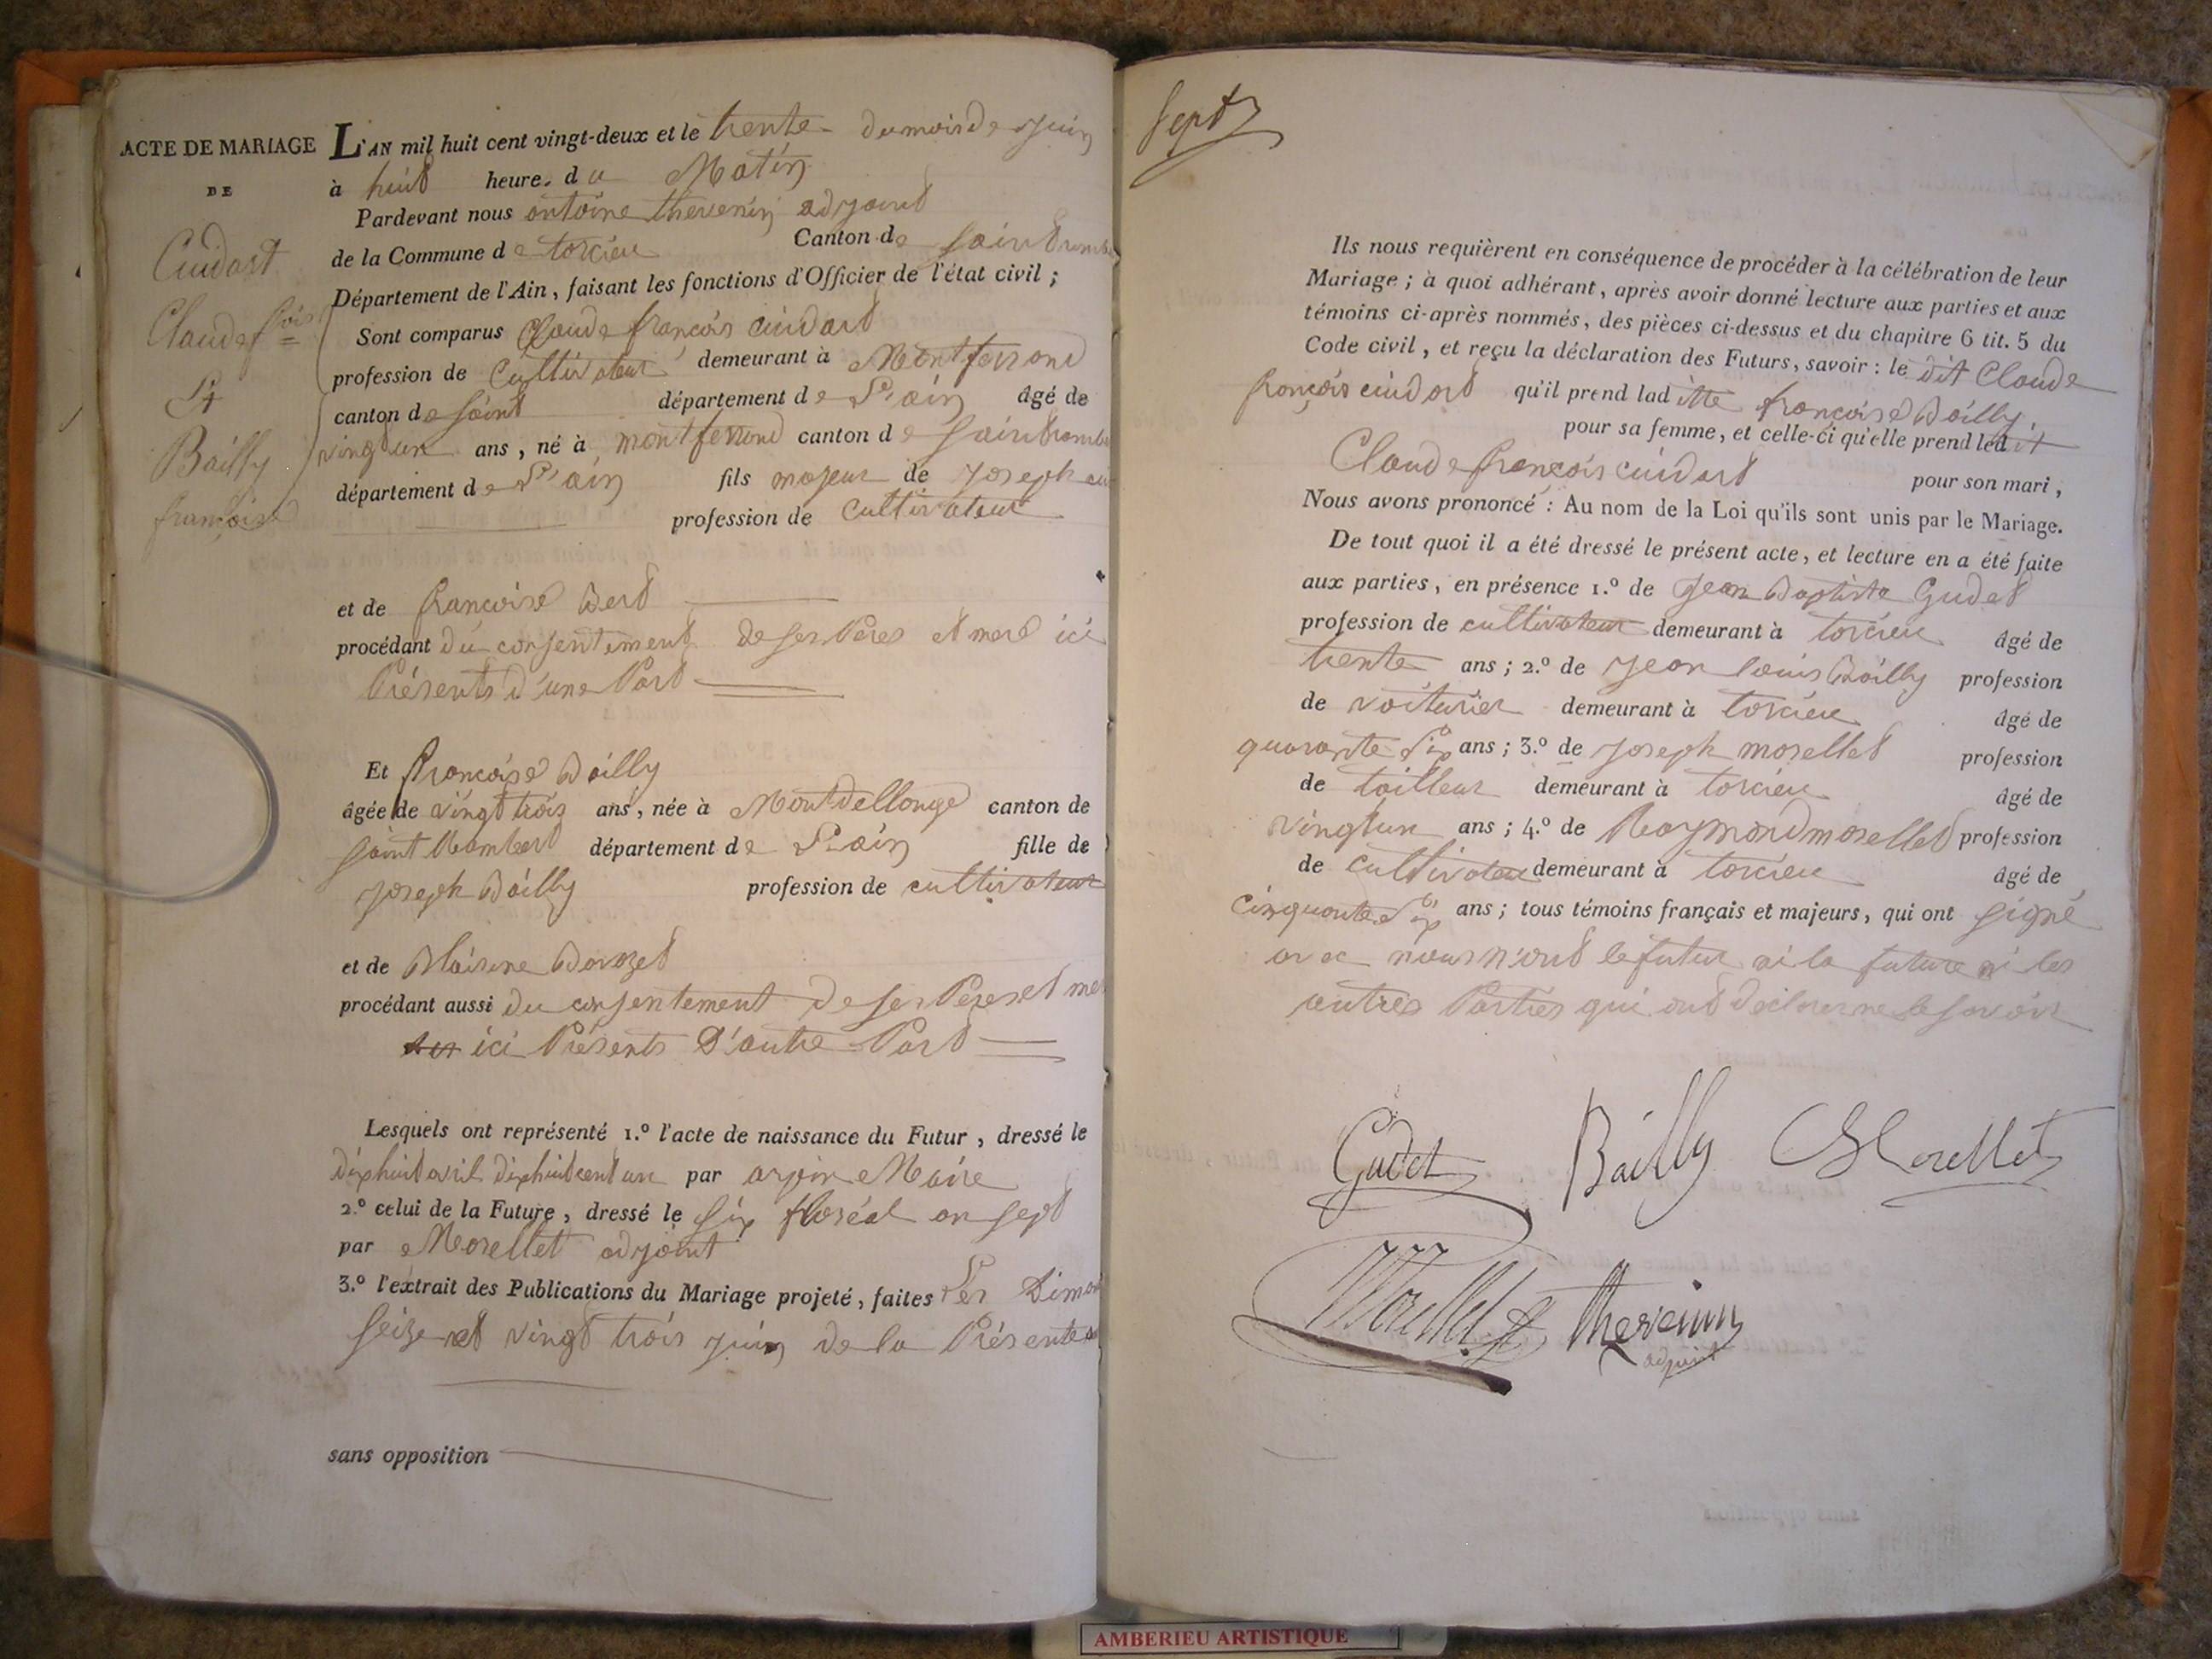 ACTE DE MARIAGE
DE
Cuidart
Claude f.ois
Et
Bailly
françoise
L'AN mil huit cent vingt-deux et le trente du mois de juin
à huit heure. du Matin
Pardevant nous antoine thevenin adjoint
de la Commune de torcieu Canton de saint
Département de l'Ain, faisant les fonctions d'Officier de l'état civil ;
Sont comparus Claude françois cuidart
profession de Cultivateur demeurant à Montferrand
canton de saint département de L'ain âgé de
vingtun ans, né à montferrand canton de saint
département de L'ain fils majeur de joseph
profession de Cultivateur
et de françoise
procédant du consentement de ses Peres et mere ici
Présents d'une Part
Et françoise Bailly
âgée de vingt trois ans, née à canton de
saint Rambert département de L'ain fille de
joseph Bailly profession de cultivateur
et de
procédant aussi du consentement de ses Peres et
ici Présents D'autre Part
Lesquels ont représenté 1.º l'acte de naissance du Futur, dressé le
dixhuit avril dixhuitcent un par Maire
2.º celui de la Future, dressé le six floréal an sept
par Morellet adjoint
3.º l'extrait des Publications du Mariage projeté, faites Les
seize et vingt trois juin de la Présente
sans opposition
sept
Ils nous requièrent en conséquence de procéder à la célébration de leur
Mariage ; à quoi adhérant, après avoir donné lecture aux parties et aux
témoins ci-après nommés, des pièces ci-dessus et du chapitre 6 tit. 5 du
Code civil, et reçu la déclaration des Futurs, savoir : le dit Claude
françois cuidart qu'il prend laditte françoise Bailly
pour sa femme, et celle-ci qu'elle prend ledit
Claude françois cuidart pour son mari,
Nous avons prononcé : Au nom de la Loi qu'ils sont unis par le Mariage.
De tout quoi il a été dressé le présent acte, et lecture en a été faite
aux parties, en présence 1.º de jean Baptiste Gudet
profession de cultivateur demeurant à torcieu âgé de
trente ans ; 2.º de jean louis Bailly profession
de voiturier demeurant à torcieu âgé de
quarante Six ans ; 3.º de joseph morellet profession
de tailleur demeurant à torcieu âgé de
vingtun ans ; 4.º de Raymond morellet profession
de cultivateur demeurant à torcieu âgé de
cinquante Six ans ; tous témoins français et majeurs, qui ont signé
avec nous n'ont le futur ni la future ni les
autres Parties qui ont
Gudet Bailly Morellet
Morellet thevenin
adjoint
AMBERIEU ARTISTIQUE